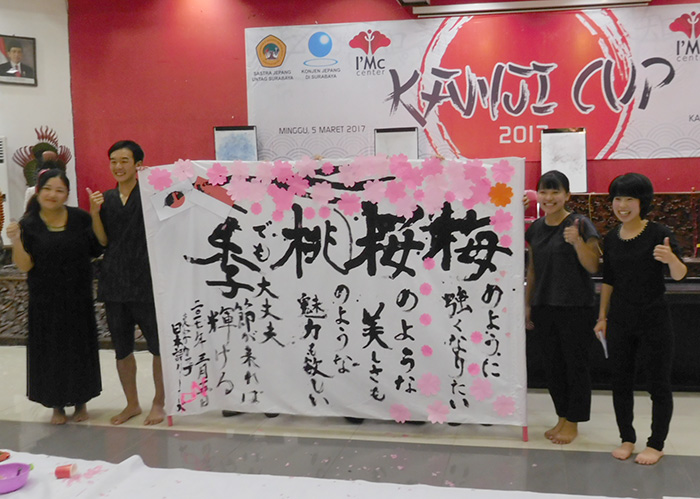 SASTRA JEPANG
UNTAG SURABAYA
KONJEN JEPANG
DI SURABAYA
I'Mc
center
I'Mc
center
KANJI CUP
2017
MINGGU, 5 MARET 2017
KA
梅のように
強くなりたい
桜のような
美しさも
桃のような
魅力も欲しい
でも大丈夫
季節が来れば
輝ける
二〇一七年三月五日